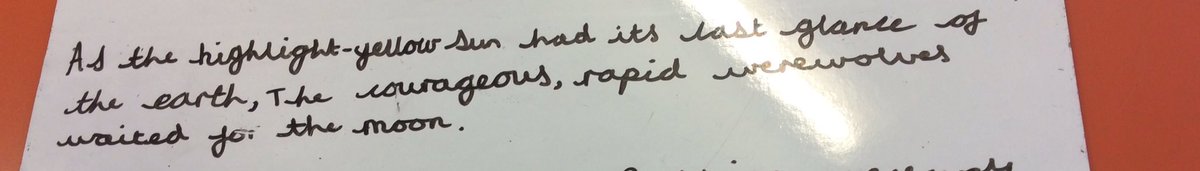 As the highlight-yellow sun had its last glance of
the earth, The courageous, rapid werewolves
waited for the moon.